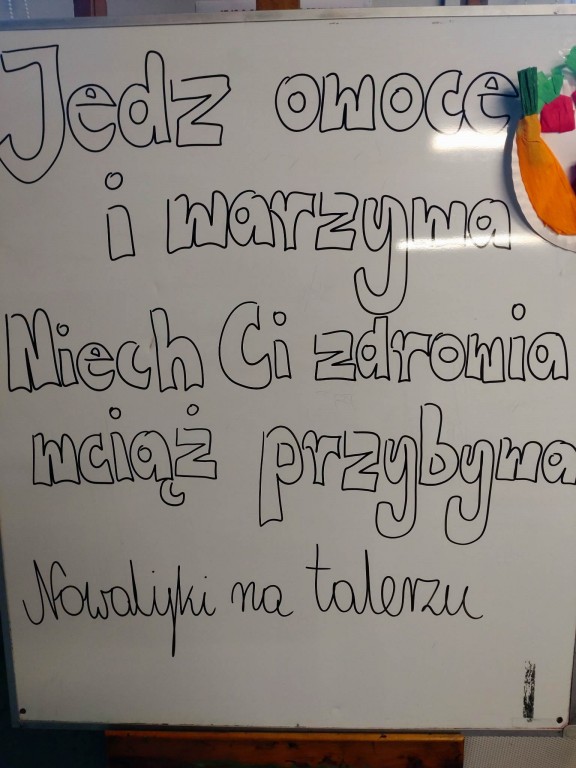 Jedz owoce
i warzywa
Niech Ci zdrowia
wciąż przybywa
Nowalijki na talerzu